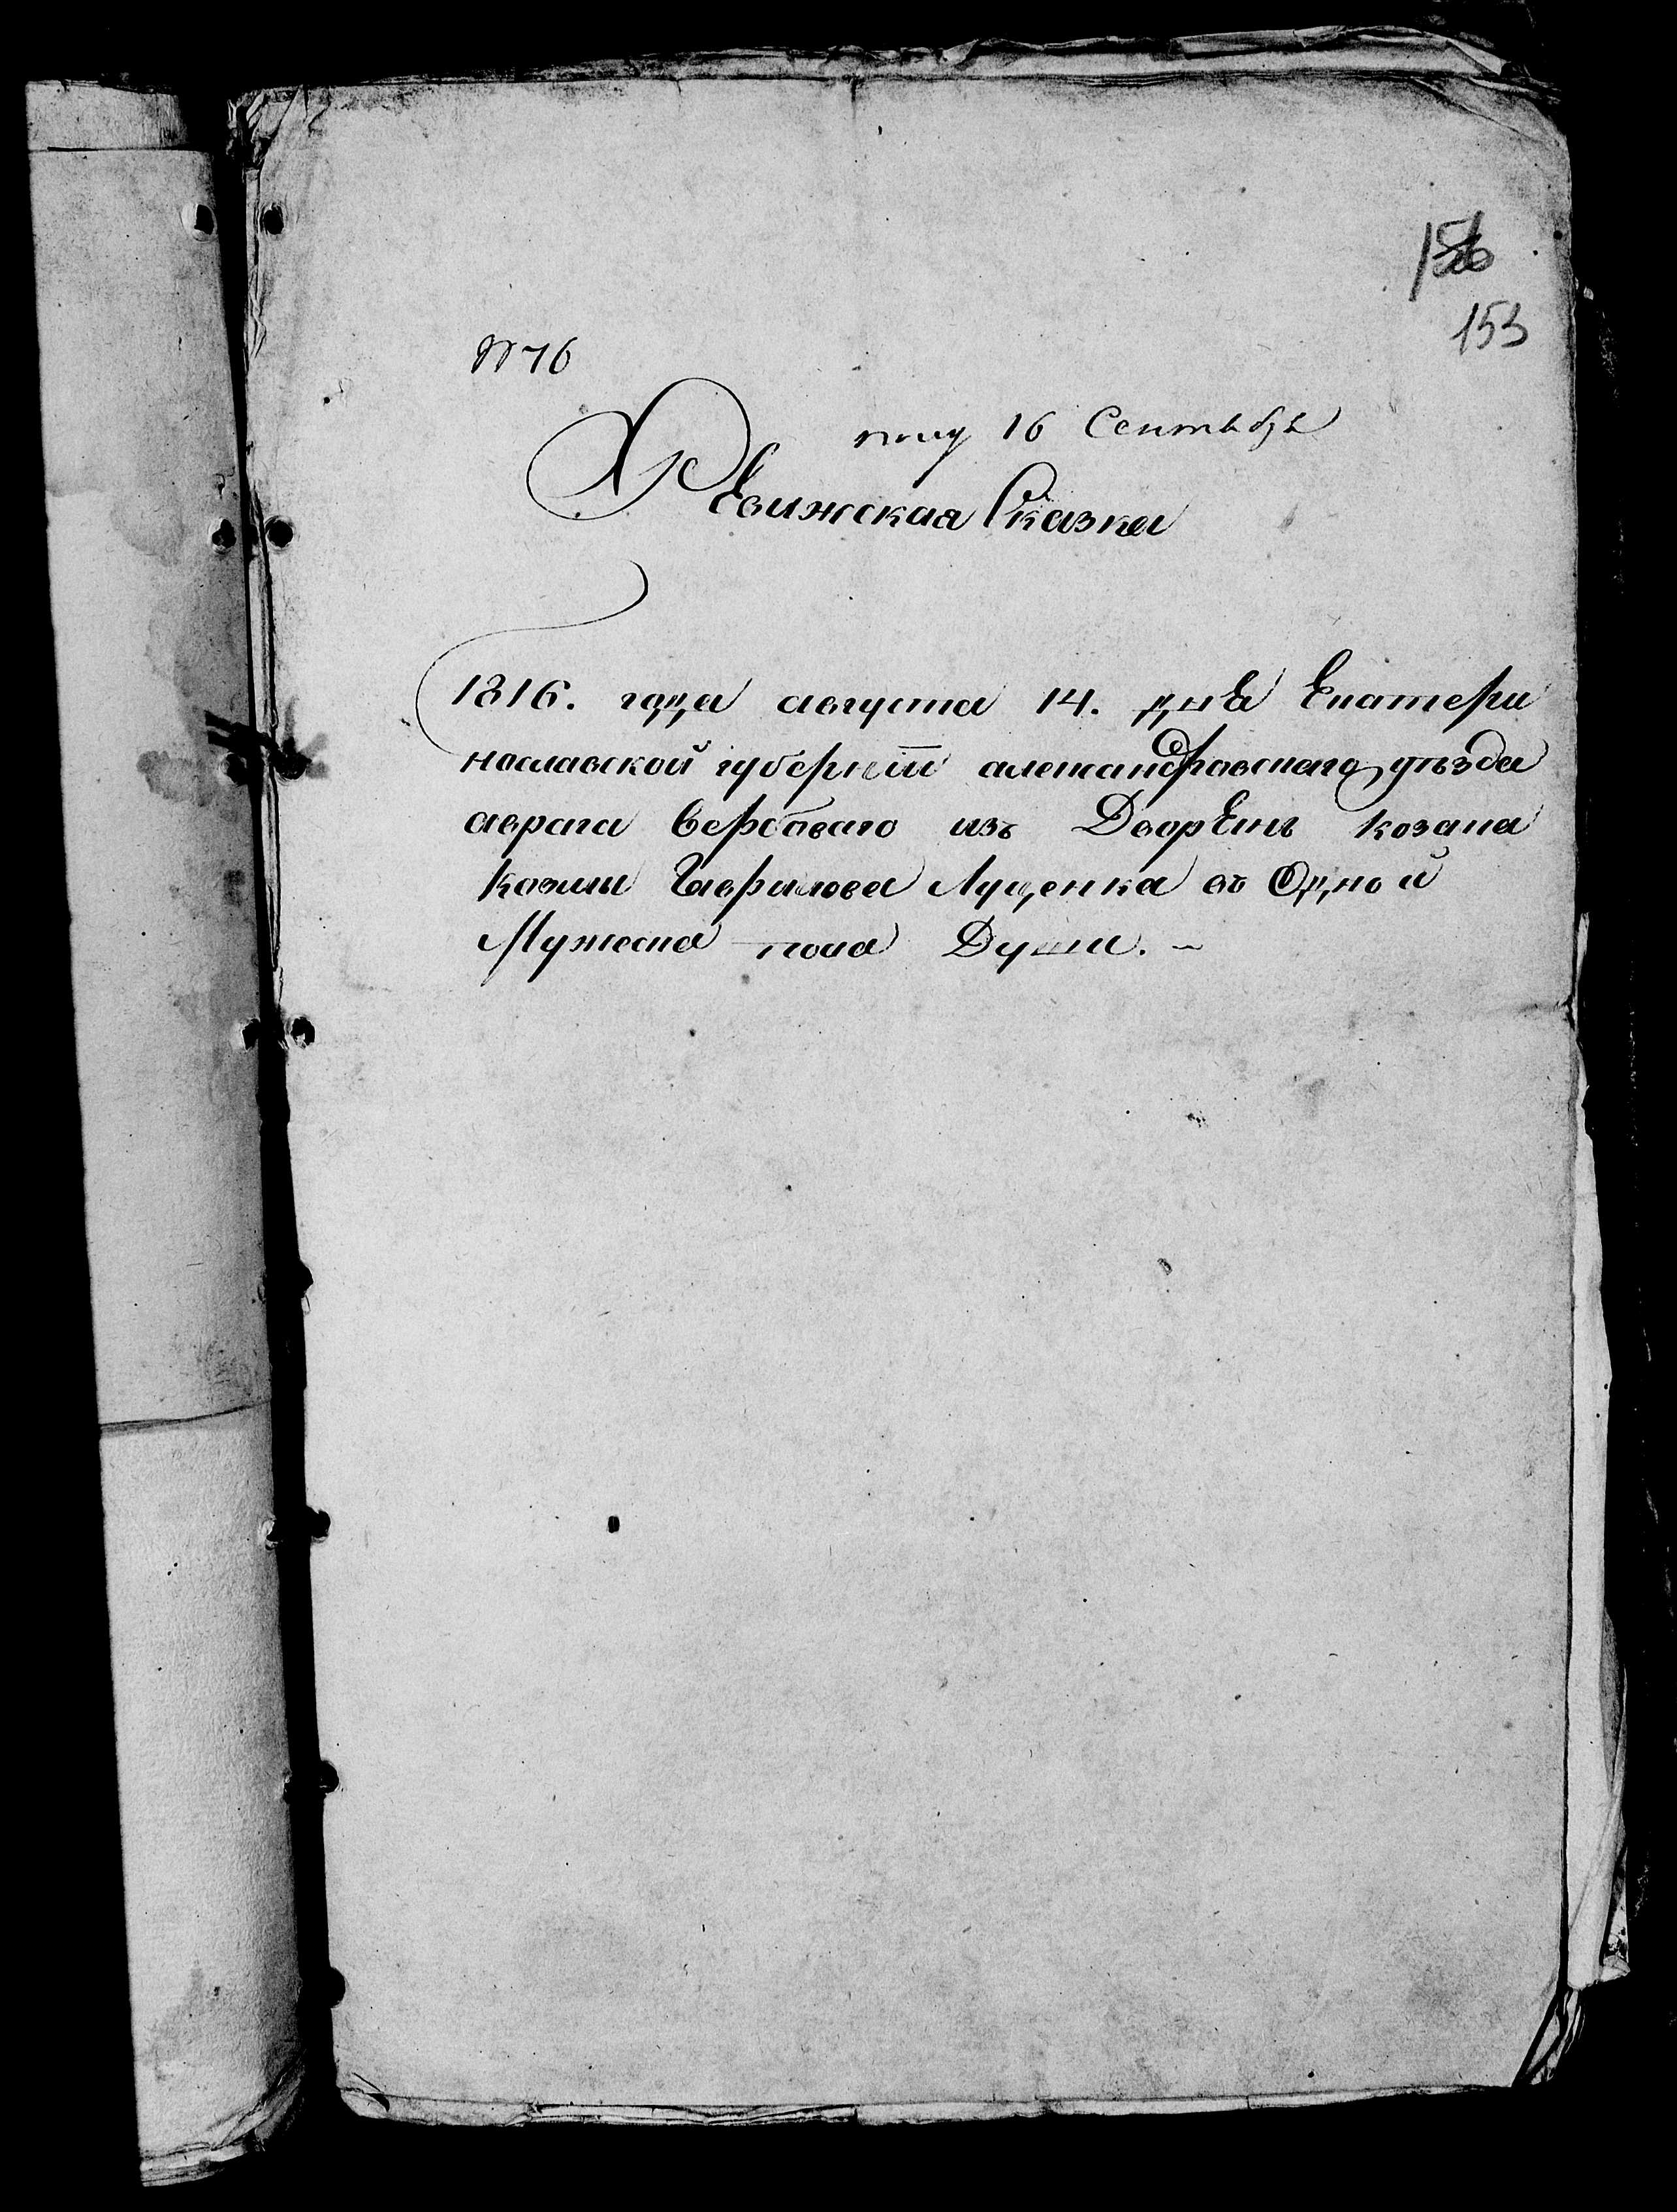 153
N 76
полу 16 Сентября
Ревижская Сказка
1816. года августа 14. дня Екатери
нославской губернiи александравскаго уѣзда
аврага вербаваго изъ Дворянъ козака
казмы Гаврилова Луценка въ Одной
Мужеска пола Души.